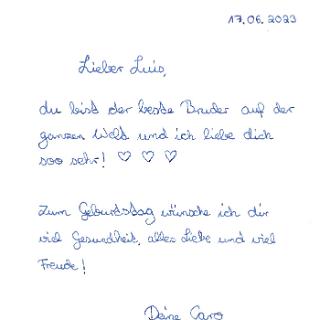 17.06.2023
Lieber Luis,
du bist der beste Bruder auf der
ganzen Welt und ich liebe dich
soo sehr! ♡ ♡ ♡
Zum Geburtstag wünsche ich dir
viel Gesundheit, alles Liebe und viel
Freude!
Deine Caro